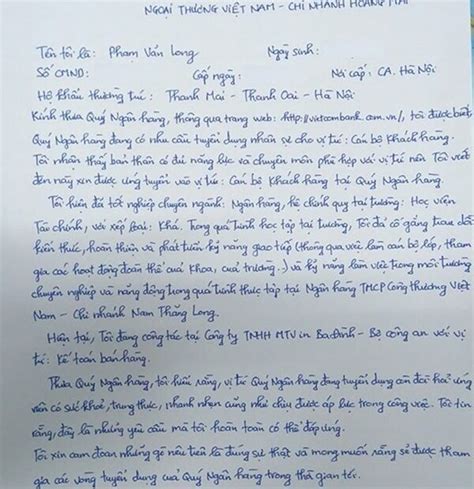 NGOẠI THƯƠNG VIỆT NAM - CHI NHÁNH HOÀNG MAI
Tên tôi là: Phạm Văn Long Ngày sinh:
Số CMND: Cấp ngày: Nơi cấp: CA. Hà Nội
Hộ khẩu thường trú: Thanh Mai - Thanh Oai - Hà Nội
Kính thưa Quý Ngân hàng, thông qua trang web: http://vietcombank.com.vn/, tôi được biết
Quý Ngân hàng đang có nhu cầu tuyển dụng nhân sự cho vị trí: Cán bộ khách hàng.
Tôi nhận thấy bản thân có đủ năng lực và chuyên môn phù hợp với vị trí nên Tôi viết
đơn này xin được ứng tuyển vào vị trí: Cán bộ Khách hàng tại Quý Ngân hàng.
Tôi hiện đã tốt nghiệp chuyên ngành: Ngân hàng, hệ chính quy tại trường: Học viện
Tài chính, với xếp loại: Khá. Trong quá trình học tập tại trường, Tôi đã cố gắng trau dồi
kiến thức, hoàn thiện và phát triển kỹ năng giao tiếp (thông qua việc làm cán bộ lớp, tham
gia các hoạt động đoàn thể của khoa, của trường..) và kỹ năng làm việc trong môi trường
chuyên nghiệp và năng động trong quá trình thực tập tại Ngân hàng TMCP Công thương Việt
Nam - Chi nhánh Nam Thăng Long.
Hiện tại, Tôi đang công tác tại Công ty TNHH MTV in Ba Đình - Bộ công an với vị
trí: Kế toán bán hàng.
Thưa Quý Ngân hàng, tôi hiểu rằng, vị trí Quý Ngân hàng đang tuyển dụng cần đòi hỏi ứng
viên có sức khoẻ, trung thực, nhanh nhẹn cũng như chịu được áp lực trong công việc. Tôi tin
rằng, đây là những yêu cầu mà tôi hoàn toàn có thể đáp ứng.
Tôi xin cam đoan những gì nêu trên là đúng sự thật và mong muốn rằng sẽ được tham
gia các vòng tuyển dụng của Quý Ngân hàng trong thời gian tới.